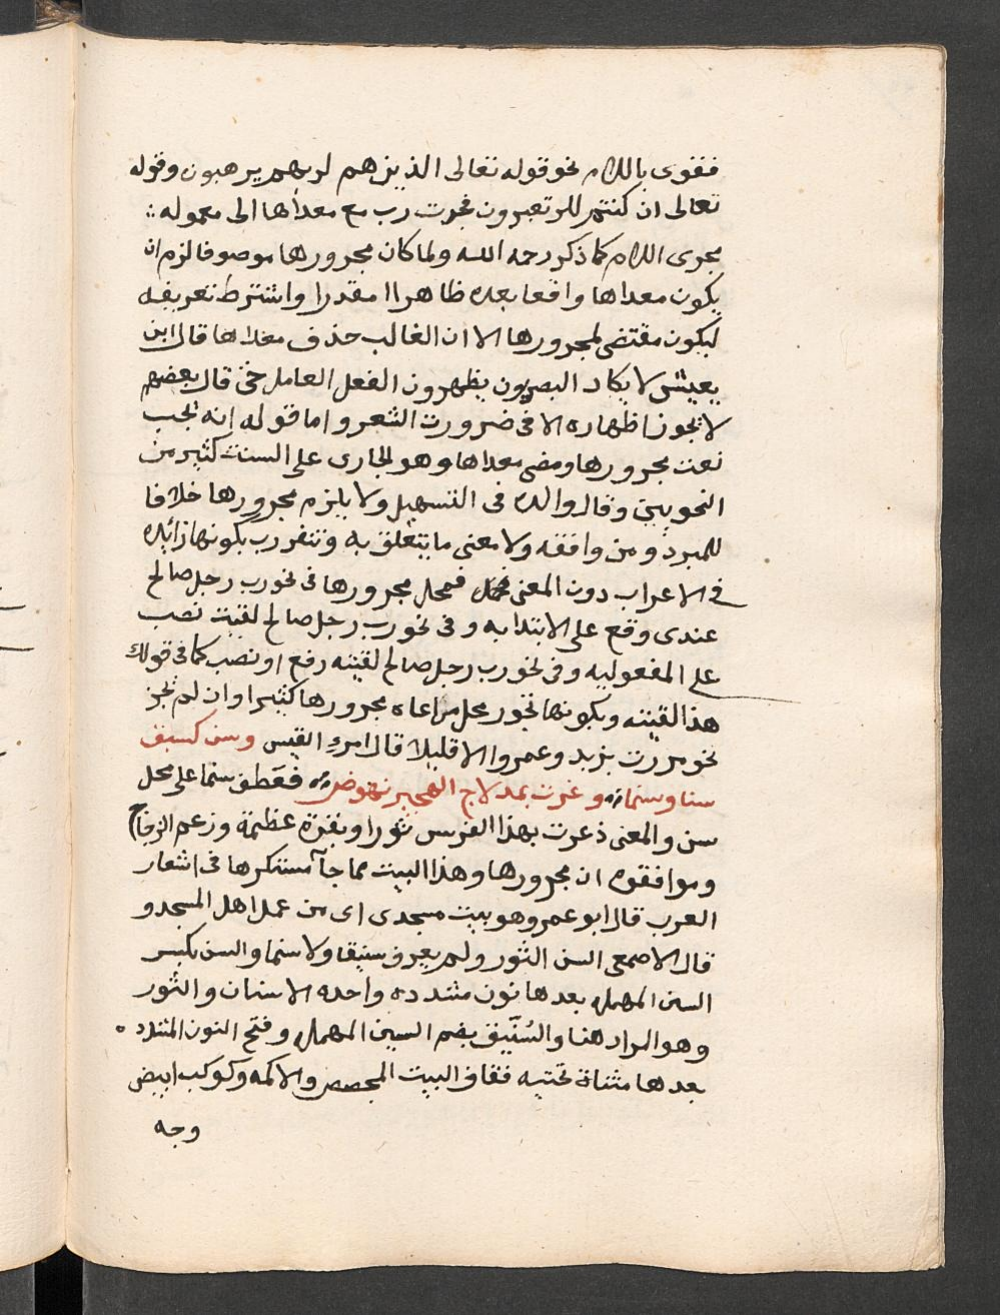 فقوى باللام نحو قوله تعالى الذين هم لربهم يرهبون وقوله
تعالى ان كنتم للرؤيا تعبرون فجرت رب مع معداها الى معموله
مجرى اللام كما ذكر رحمه الله ولما كان مجرورها موصوفا لزم ان
يكون معداها واقعا بعده ظاهرا او مقدرا واشترط تعريفه
ليكون مقتضى لمجرورها الا ان الغالب حذف معداها قال ابن
يعيش لا يكاد البصريون يظهرون الفعل العامل حتى قال بعضهم
لا يجوز اظهاره الا فى ضرورت الشعر واما قوله إنه يجب
نعت مجرورها ومضى معداها وهو الجارى على السنت كثير من
النحويين وقال والده فى التسهيل ولا يلزم مجرورها خلافا
للمبرد ومن وافقه ولا معنى ما يتعلق به وتنفرد رب بكونها زائده
فى الاعراب دون المعنى فمحل مجرورها فى نحو رب رجل صالح
عندى وقع على الابتدا به وفى نحو رب رجل صالح لقيت نصب
على المفعوليه وفى نحو رب رجل صالح لقيته رفع او نصب كما فى قولك
هذا لقيته وبكونها تجوز محل مراعاه مجرورها كثيرا وان لم يجز
نحو مررت بزيد وعمروا الا قليلا قال امرء القيس وسن كسنيق
سنا وسنما وعرت بمدلاج الهجير نهوض فعطف سنما على محل
سن والمعنى ذعرت بهذا الفرس ثورا وبقرة عظيمة وزعم الزجاج
وموافقوه ان مجرورها وهذا البيت مما جآ مستكرها فى اشعار
العرب قال ابو عمر وهو بيت مسجدى اى من عمل اهل المسجد و
قال الاصمعى السن الثور ولم يعرف سنيقا ولا سنما والسن بكسر
السين المهمله بعدها نون مشدده واحده الاسنان والثور
وهو المراد هنا والسُنّيق بضم السين المهمله وفتح النون المشدد
بعدها مثناة تحتيه فقاف البيت المجصص والاكمه وكوكب ابيض
وجه